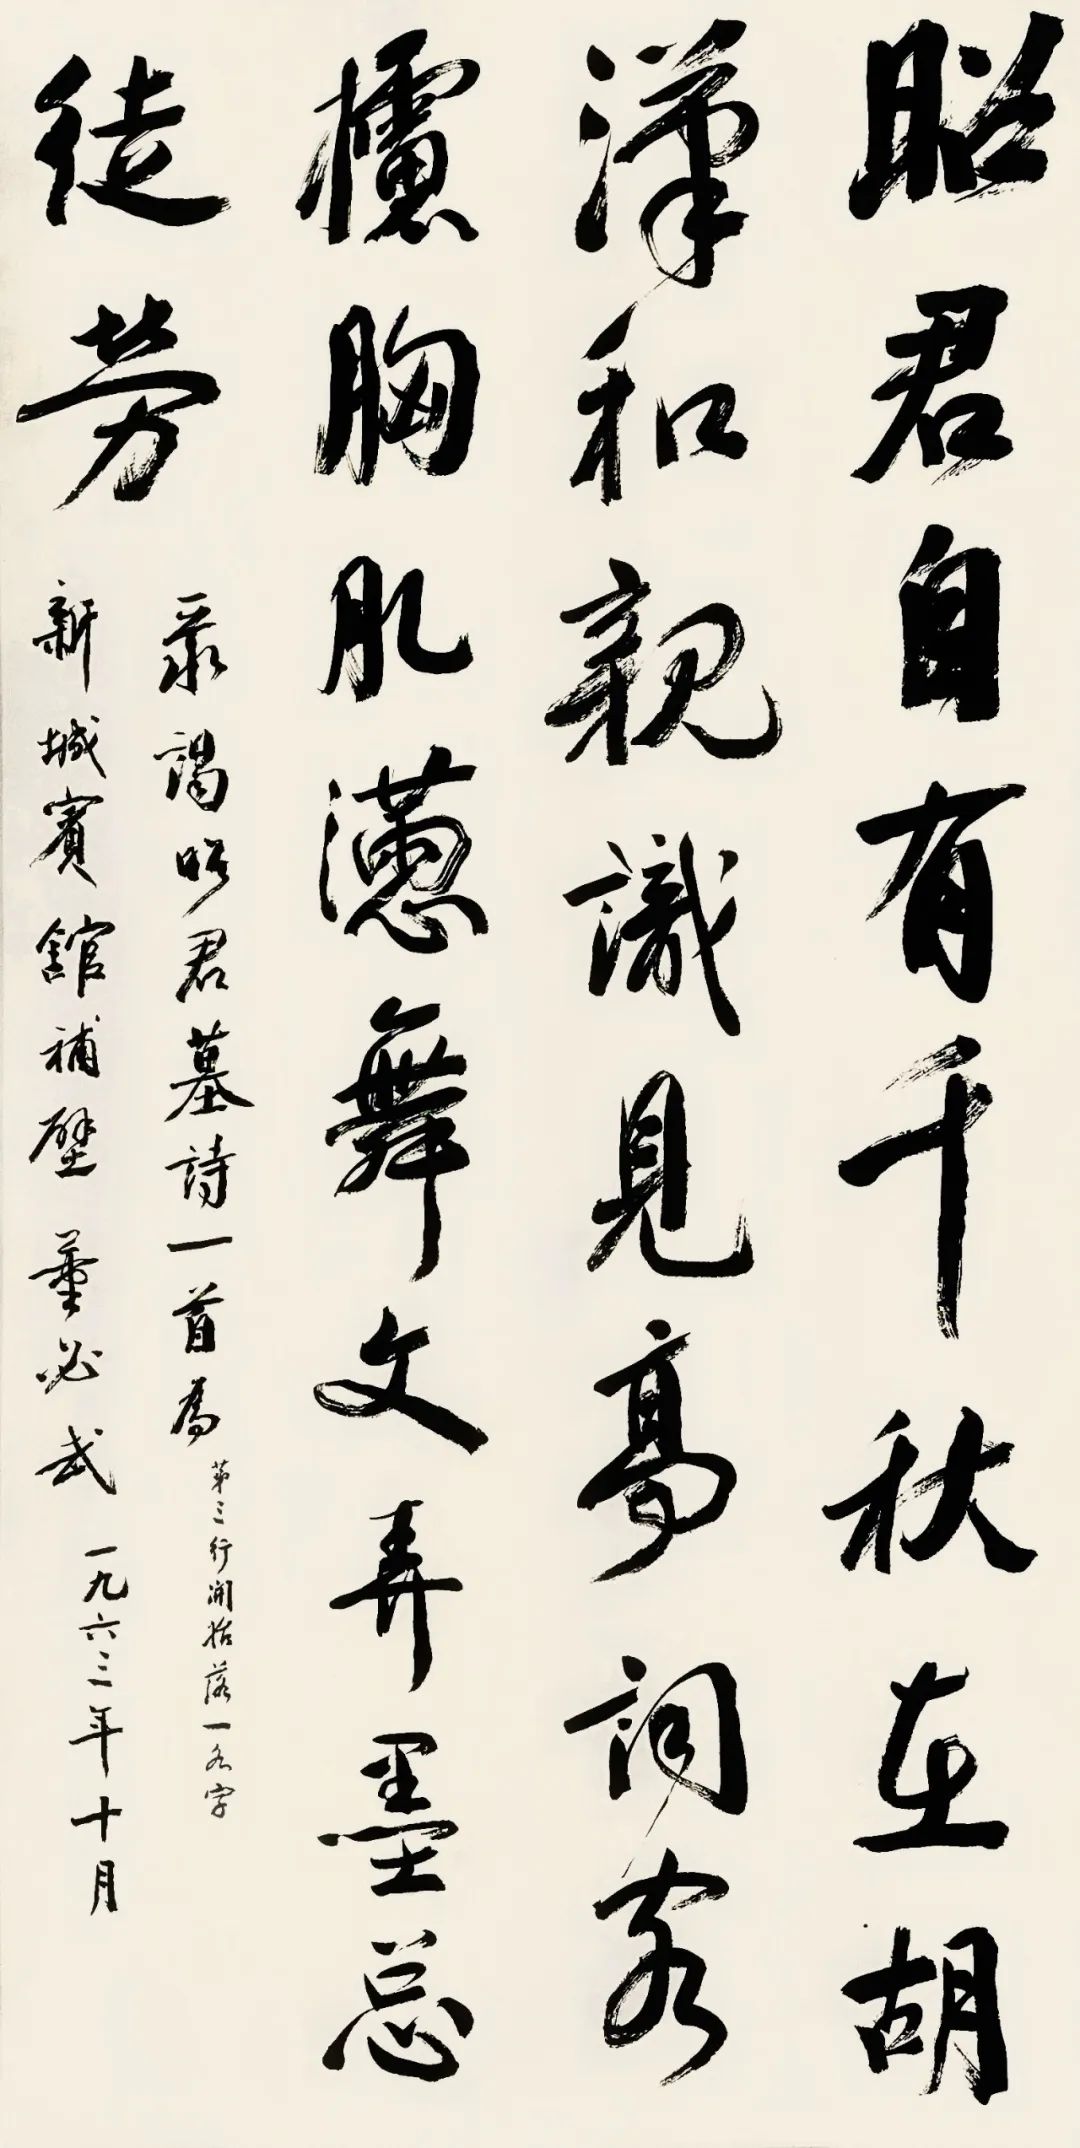 昭君自有千秋在胡
漢和親識見高詞客
攄胸肊懣舞文弄墨总
徒劳
录謁昭君墓詩一首為
第三行開始落一各字
新城賓館補壁 董必武 一九六三年十月